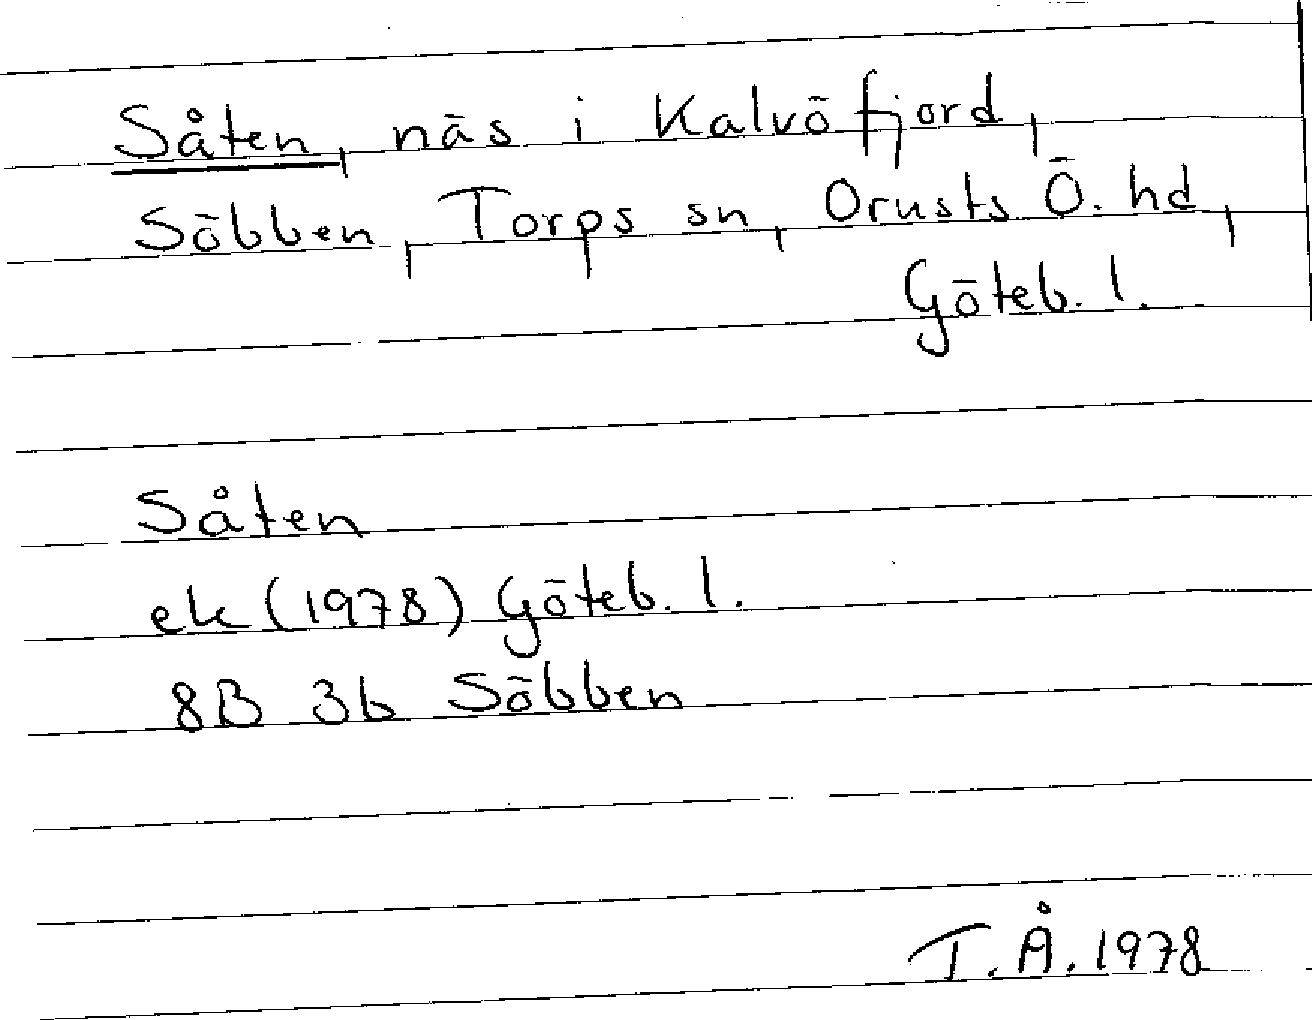 Såten, näs i Kalvö fjord,
Söbben, Torps sn, Orusts Ö. hd,
Göteb. l.
Såten
ek (1978) Göteb. l.
8B 3b Söbben
T.Å. 1978